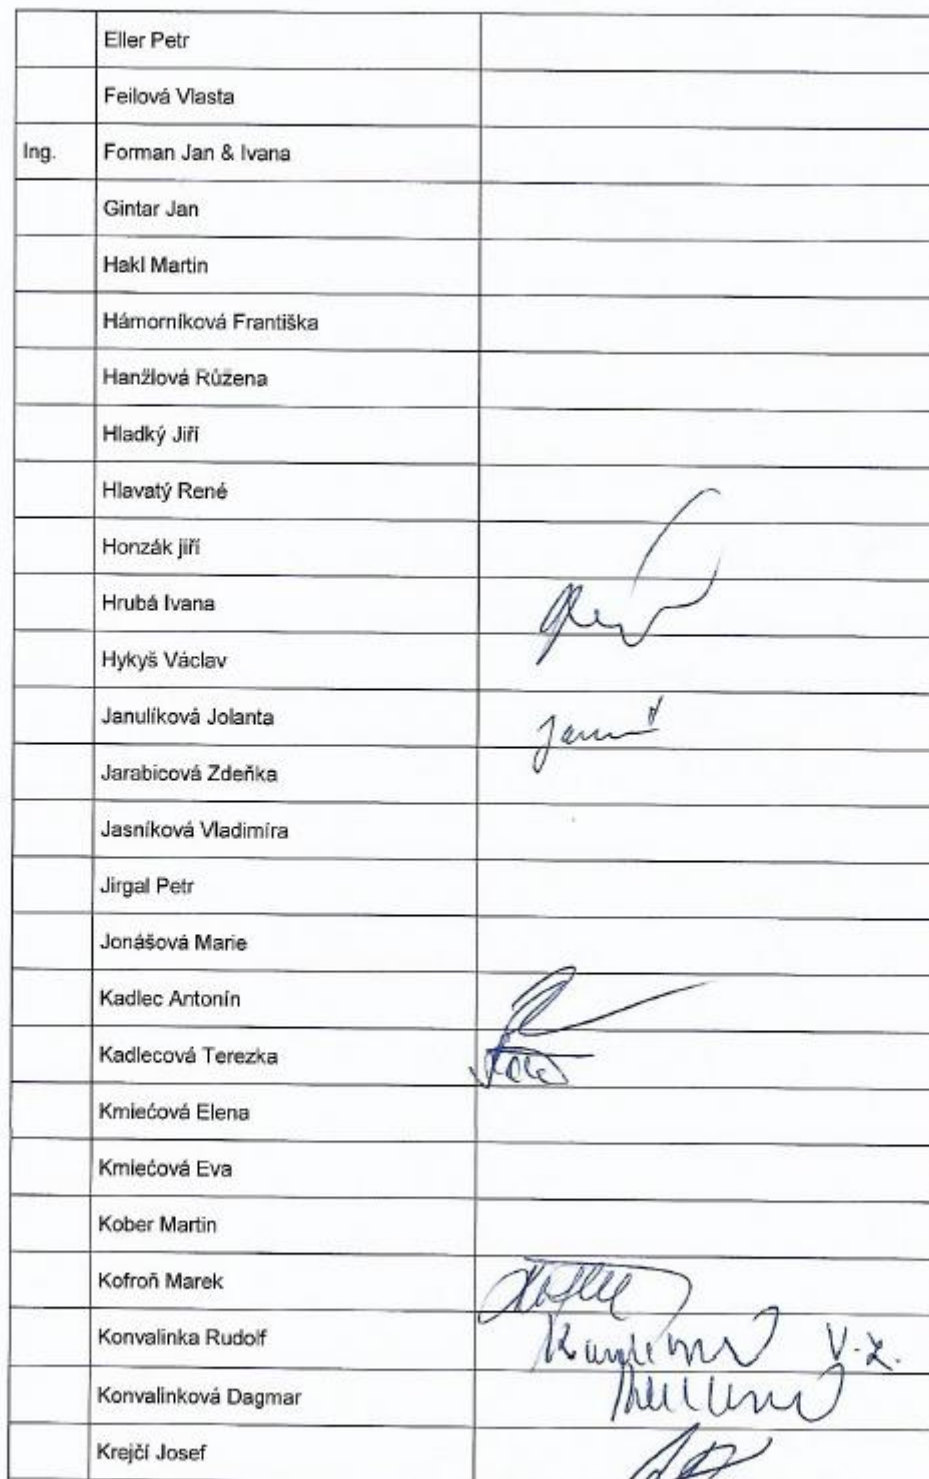 Eller Petr
Feilová Vlasta
Ing. Forman Jan & Ivana
Gintar Jan
Hakl Martin
Hámorníková Františka
Hanžlová Růžena
Hladký Jiří
Hlavatý René
Honzák jiří
Hrubá Ivana
Hykyš Václav
Janulíková Jolanta
Jarabicová Zdeňka
Jasníková Vladimíra
Jirgal Petr
Jonášová Marie
Kadlec Antonín
Kadlecová Terezka
Kmiećová Elena
Kmiećová Eva
Kober Martin
Kofroň Marek
Konvalinka Rudolf V.z.
Konvalinková Dagmar
Krejčí Josef